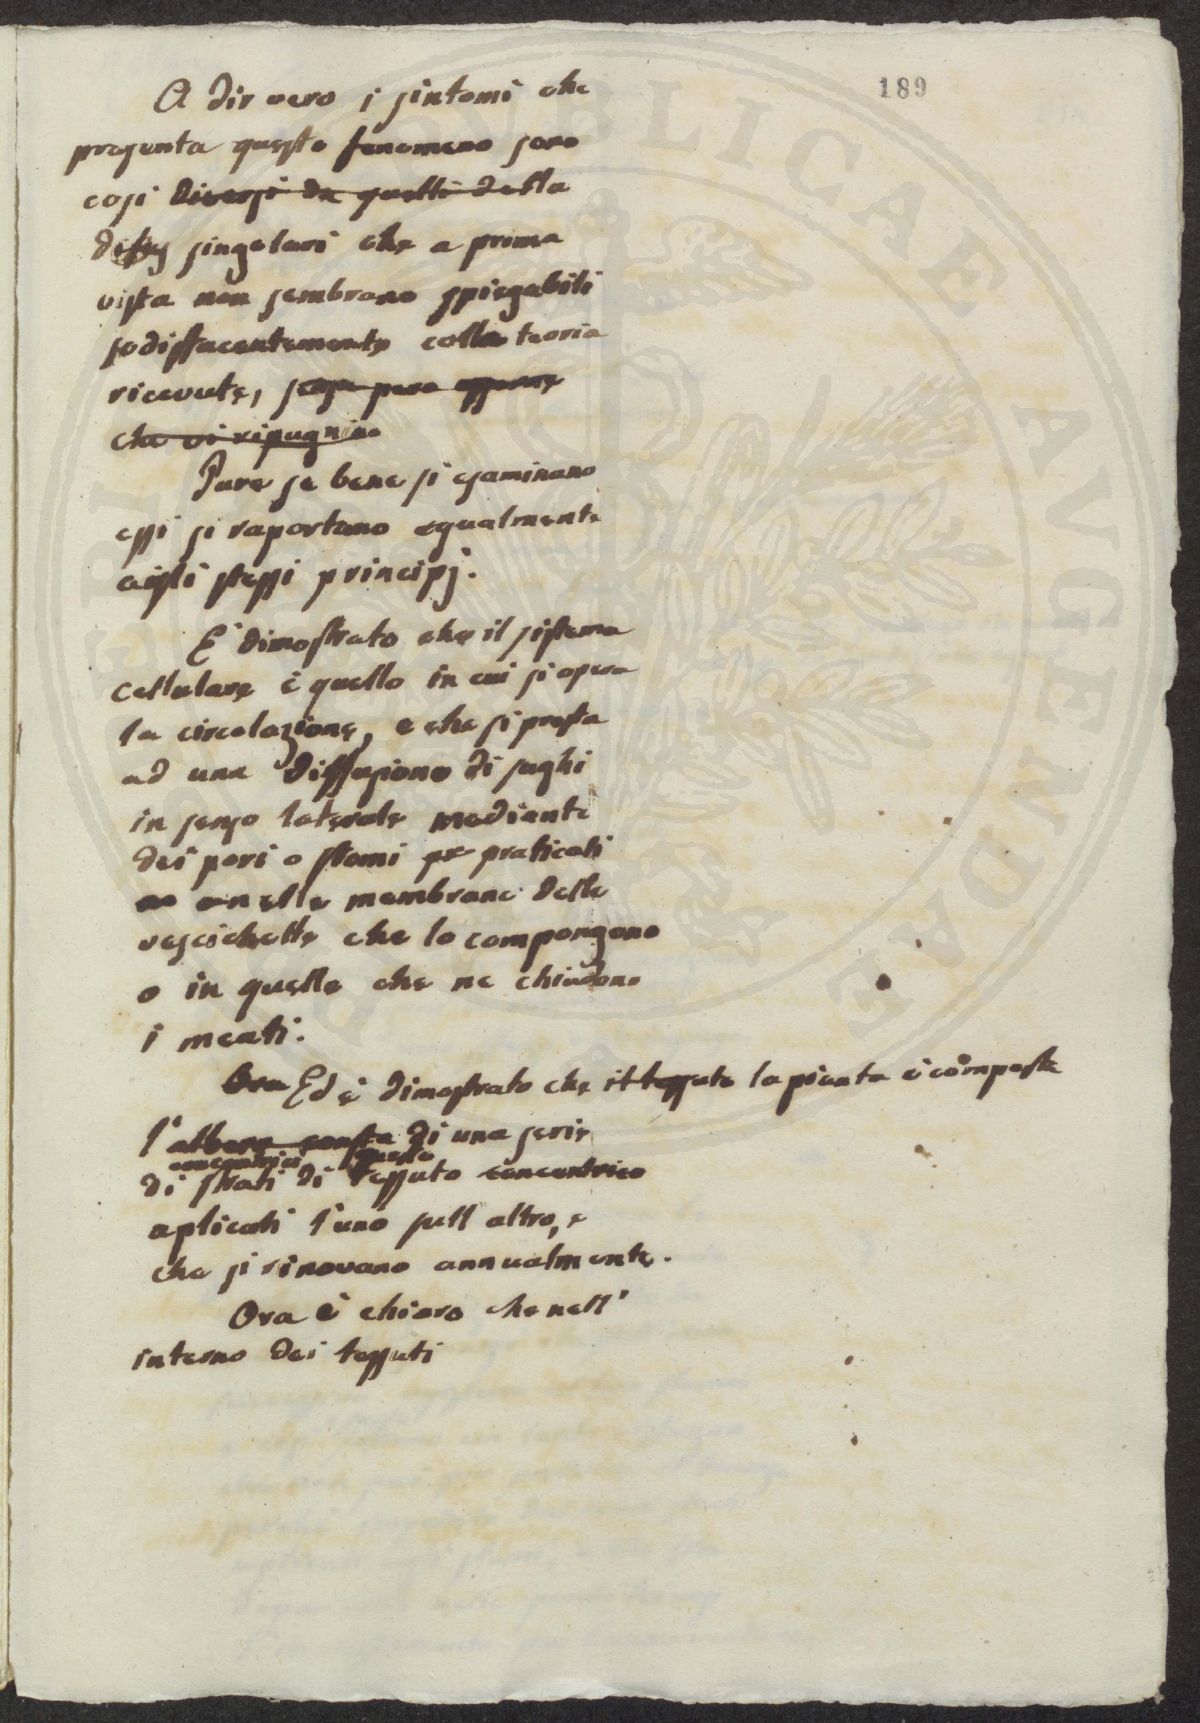 189
A dir vero i sintomi che
presenta questo fenomeno sono
cosi diversi da quelli della
singolari che a prima
vista non sembrano spiegabili
sodisfacentemente colla teoria
ricevute,
che vi ripugnino
Pure se bene si esaminano
essi si raportano egualmente
agli stessi principj.
E' dimostrato che il sistema
cellulare è quello in cui si opera
la circolazione, e che si presta
ad una diffusione di sughi
in senso laterale mediante
dei pori o stomi pr praticati
nelle membrane delle
vescichette che lo compongono
o in quelle che ne chiudono
i meati.
Ora Ed è dimostrato che il tessuto la pianta è composta
l'albero consta di una serie
concentrici questo
di strati di tessuto concentrico
aplicati l'uno sull altro, e
che si rinovano annualmente.
Ora è chiaro che nell'
interno dei tessuti